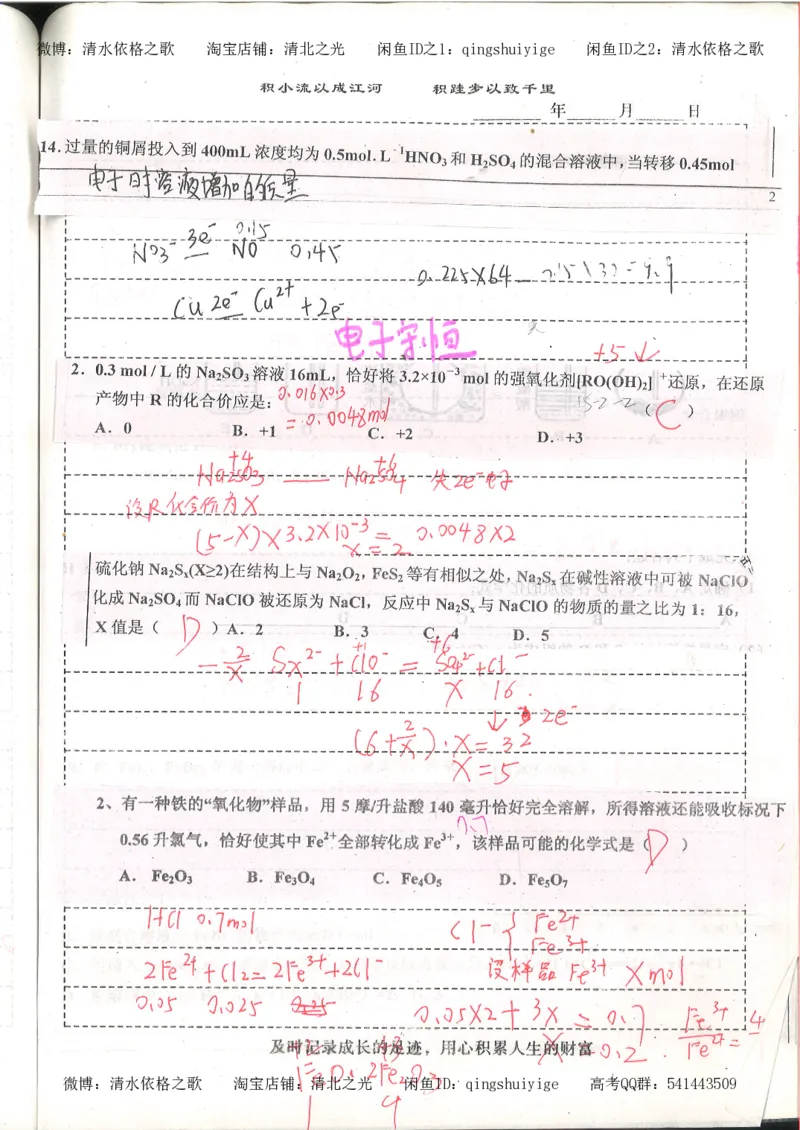 微博：清水依格之歌 淘宝店铺：清北之光 闲鱼ID之1：qingshuiyige 闲鱼ID之2：清水依格之歌
积小流以成江河 积跬步以致千里
年 月 日
14.过量的铜屑投入到 400mL 浓度均为 0.5mol. L⁻¹HNO₃ 和 H₂SO₄ 的混合溶液中,当转移 0.45mol
电子时溶液增加的质量
2
NO₃⁻ 3e⁻ NO 0.15 0.45
0.225×64 —
Cu 2e⁻ Cu²⁺ + 2e⁻
电子守恒
+5↓
2. 0.3 mol / L 的 Na₂SO₃ 溶液 16mL，恰好将 3.2×10⁻³ mol 的强氧化剂[RO(OH)₂]⁺还原，在还原
产物中 R 的化合价应是： 0.016×0.3 （ C ）
= 0.0048mol
A. 0 B. +1 C. +2 D. +3
+4 +6
Na₂SO₃ —— Na₂SO₄ 失2e⁻电子
设R化合价为X
(5-X)×3.2×10⁻³ = 0.0048×2
X=2
硫化钠 Na₂Sₓ(X≥2)在结构上与 Na₂O₂，FeS₂ 等有相似之处, Na₂Sₓ 在碱性溶液中可被 NaClO
化成 Na₂SO₄ 而 NaClO 被还原为 NaCl，反应中 Na₂Sₓ 与 NaClO 的物质的量之比为 1：16，
X 值是（ D ）A. 2 B. 3 C. 4 D. 5
+1 +6
-2/X Sx²⁻ + ClO⁻ = SO₄²⁻ + Cl⁻
1 16 X 16.
↓ 2e⁻
(6+2/X)·X=32
X=5
2、有一种铁的“氧化物”样品，用 5 摩/升盐酸 140 毫升恰好完全溶解，所得溶液还能吸收标况下
0.56 升氯气，恰好使其中 Fe²⁺全部转化成 Fe³⁺，该样品可能的化学式是（ D ）
A. Fe₂O₃ B. Fe₃O₄ C. Fe₄O₅ D. Fe₅O₇
HCl 0.7mol
Cl⁻ { Fe²⁺
Fe³⁺
2Fe²⁺ + Cl₂ = 2Fe³⁺ + 2Cl⁻ 设样品 Fe³⁺ Xmol
0.05 0.025
0.05×2 + 3X = 0.7
X=0.2. Fe³⁺/Fe²⁺ = 4
及时记录成长的足迹，用心积累人生的财富
1 4
微博：清水依格之歌 淘宝店铺：清北之光 闲鱼ID：qingshuiyige 高考QQ群：541443509